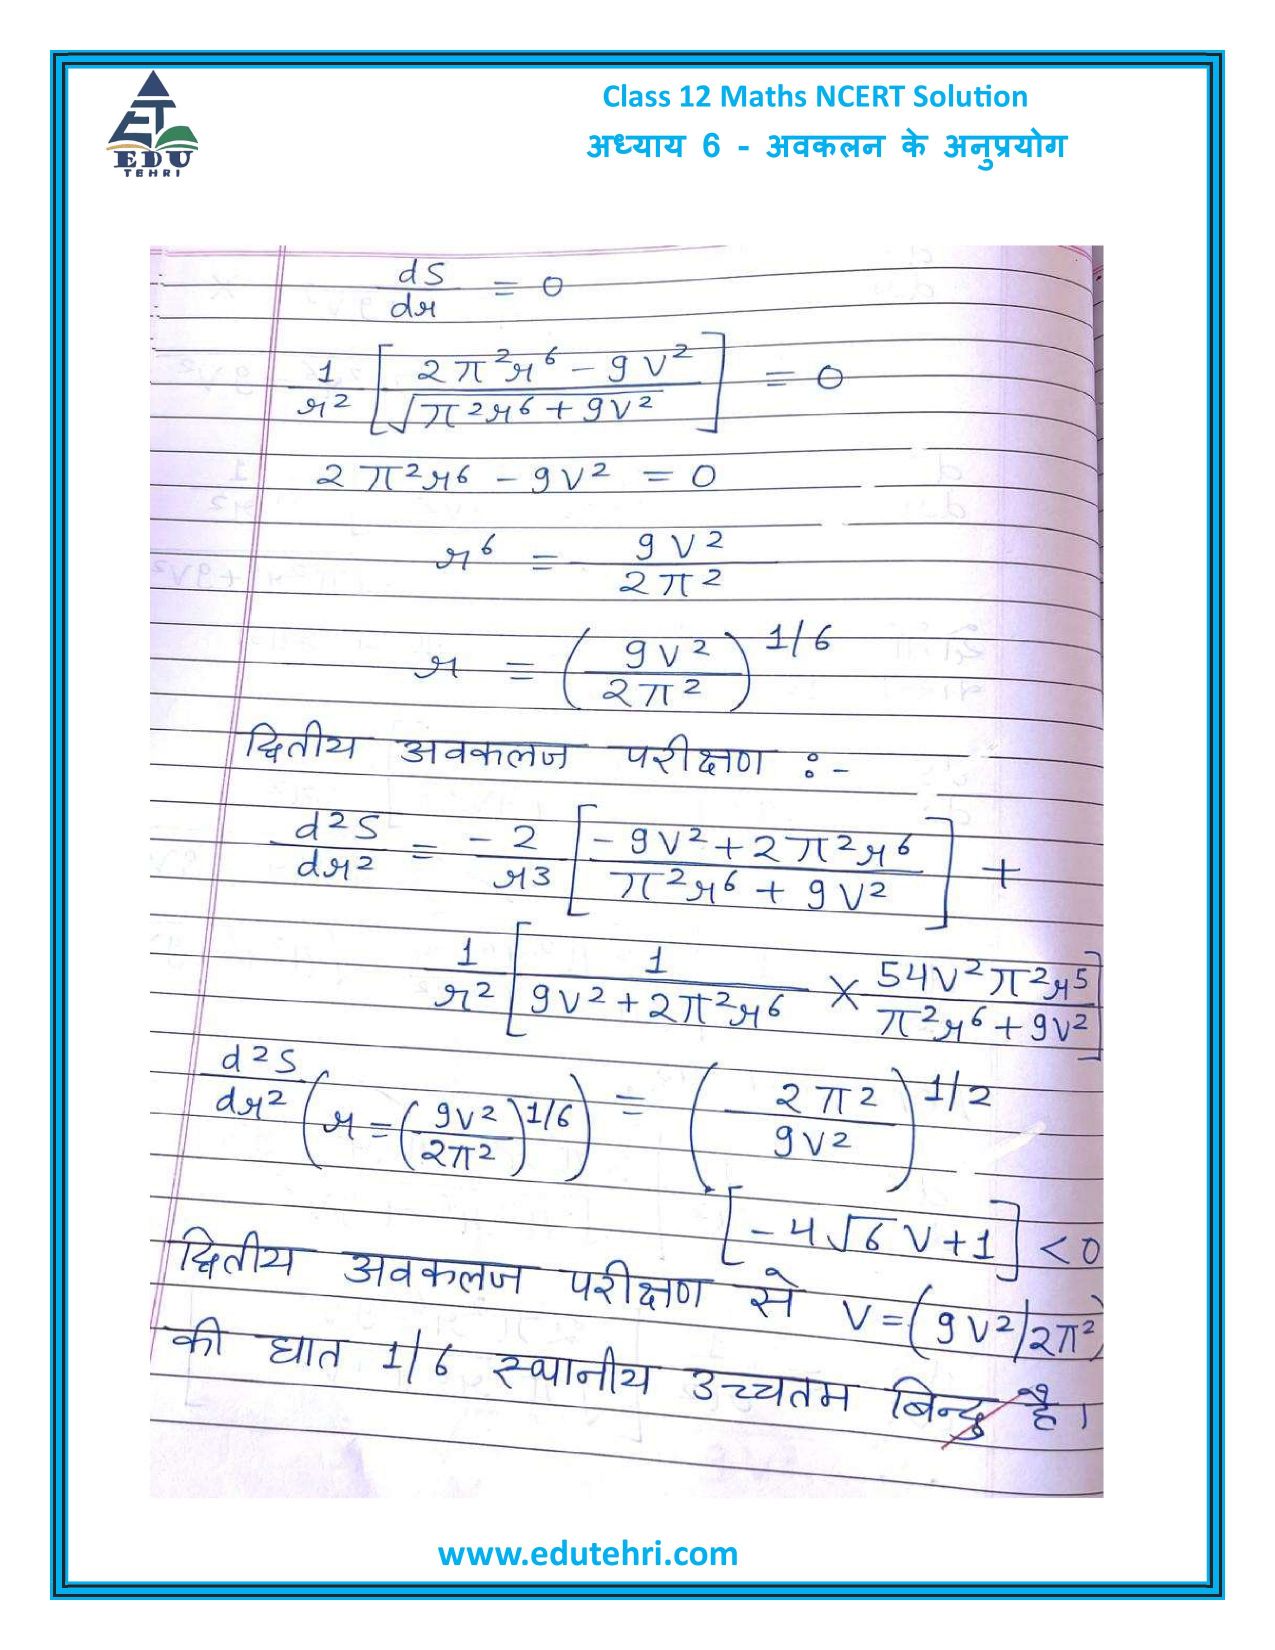 ET
EDU
TEHRI
Class 12 Maths NCERT Solution
अध्याय 6 - अवकलन के अनुप्रयोग
dS/dr = 0
1/r² [ (2π²r⁶ - 9V²) / √(π²r⁶ + 9V²) ] = 0
2π²r⁶ - 9V² = 0
r⁶ = 9V² / 2π²
r = (9V² / 2π²)^1/6
द्वितीय अवकलज परीक्षण :-
d²S/dr² = -2/r³ [ (-9V² + 2π²r⁶) / (π²r⁶ + 9V²) ] +
1/r² [ 1 / (9V² + 2π²r⁶) × 54V²π²r⁵ / (π²r⁶ + 9V²) ]
d²S/dr² (r = (9V²/2π²)^1/6) = (2π² / 9V²)^1/2
[-4√6 V + 1] < 0
द्वितीय अवकलज परीक्षण से V = (9V²/2π²)
की घात 1/6 स्थानीय उच्चतम बिन्दु है।
www.edutehri.com